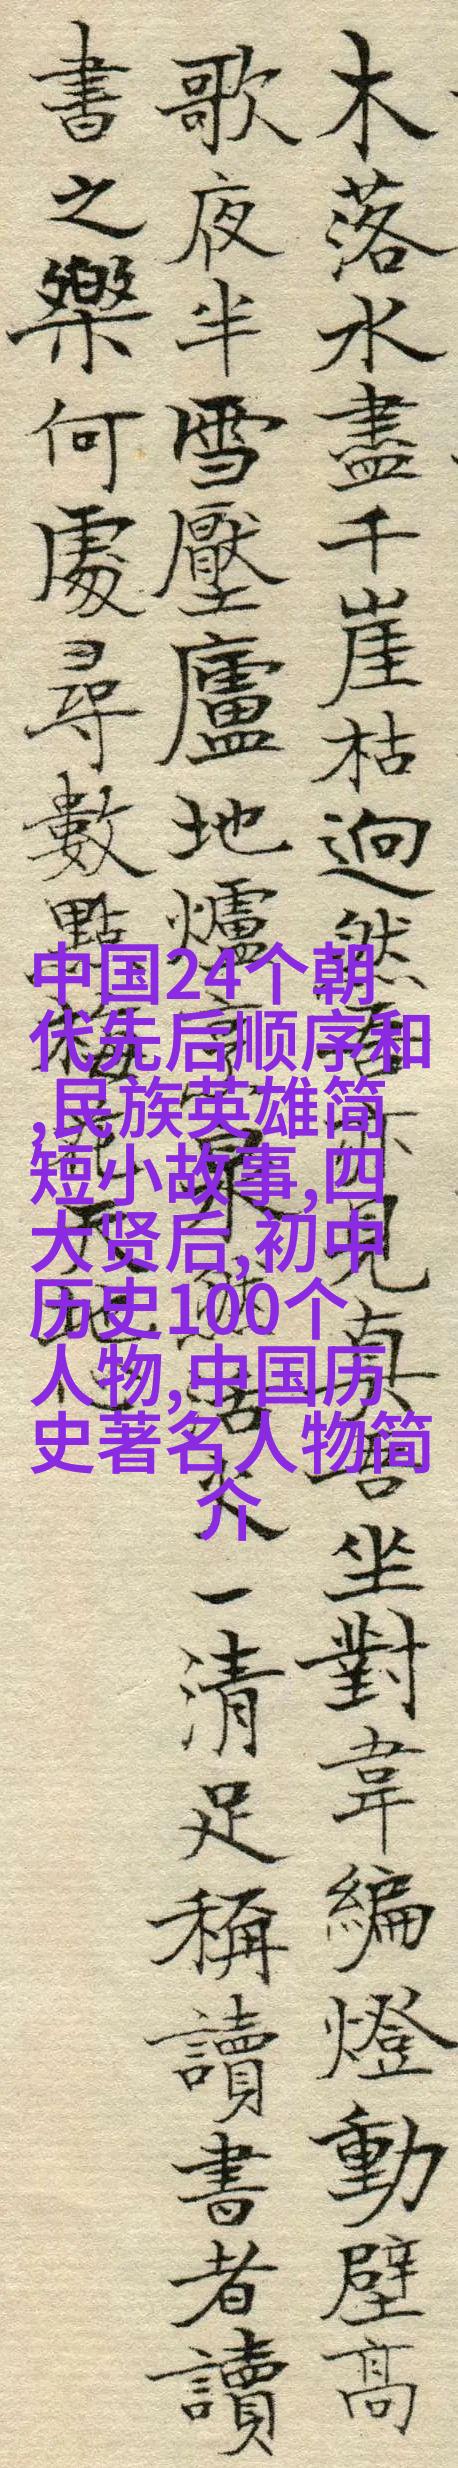 木落水盡千崖枯迥然吾亦見真吾坐對韋編燈動壁高
歌夜半雪壓廬地爐泉活火一清足稱讀書者讀
書之樂何處尋數點梅花天地
中国24个朝
代先后顺序和
,民族英雄简
短小故事,四
大贤后,初中
历史100个
人物,中国历
史著名人物简
介